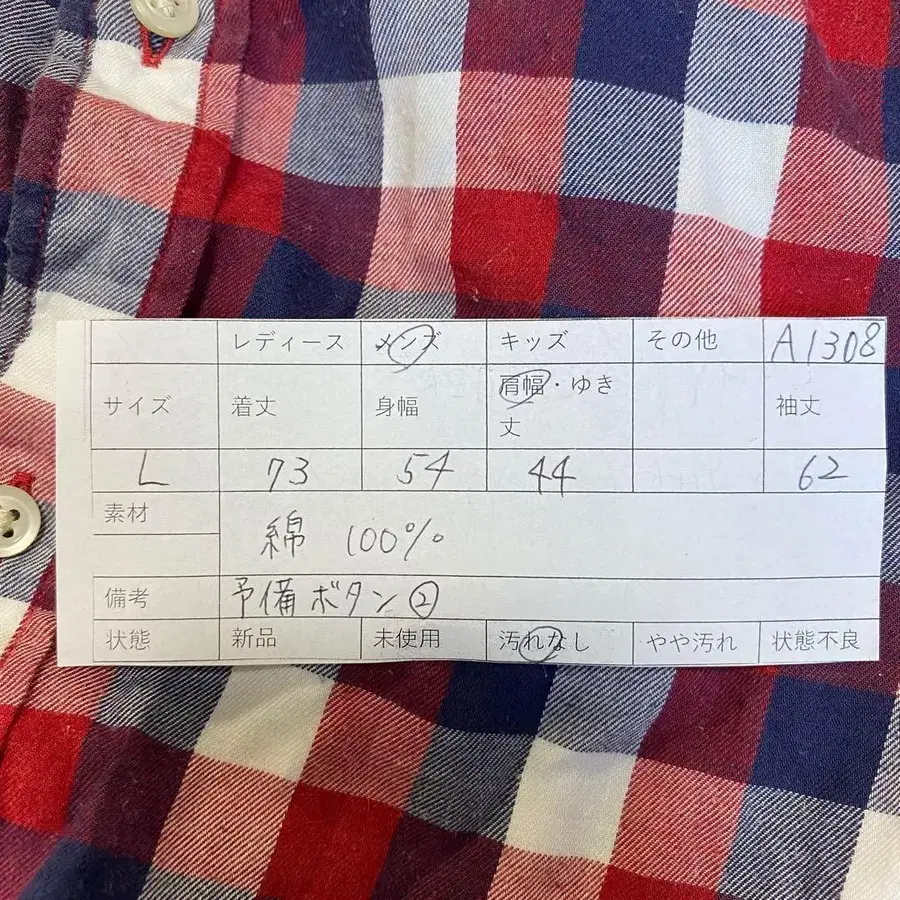 レディース メンズ キッズ その他 A1308
サイズ 着丈 身幅 肩幅・ゆき丈 袖丈
L 73 54 44 62
素材 綿 100%
備考 予備ボタン②
状態 新品 未使用 汚れなし やや汚れ 状態不良